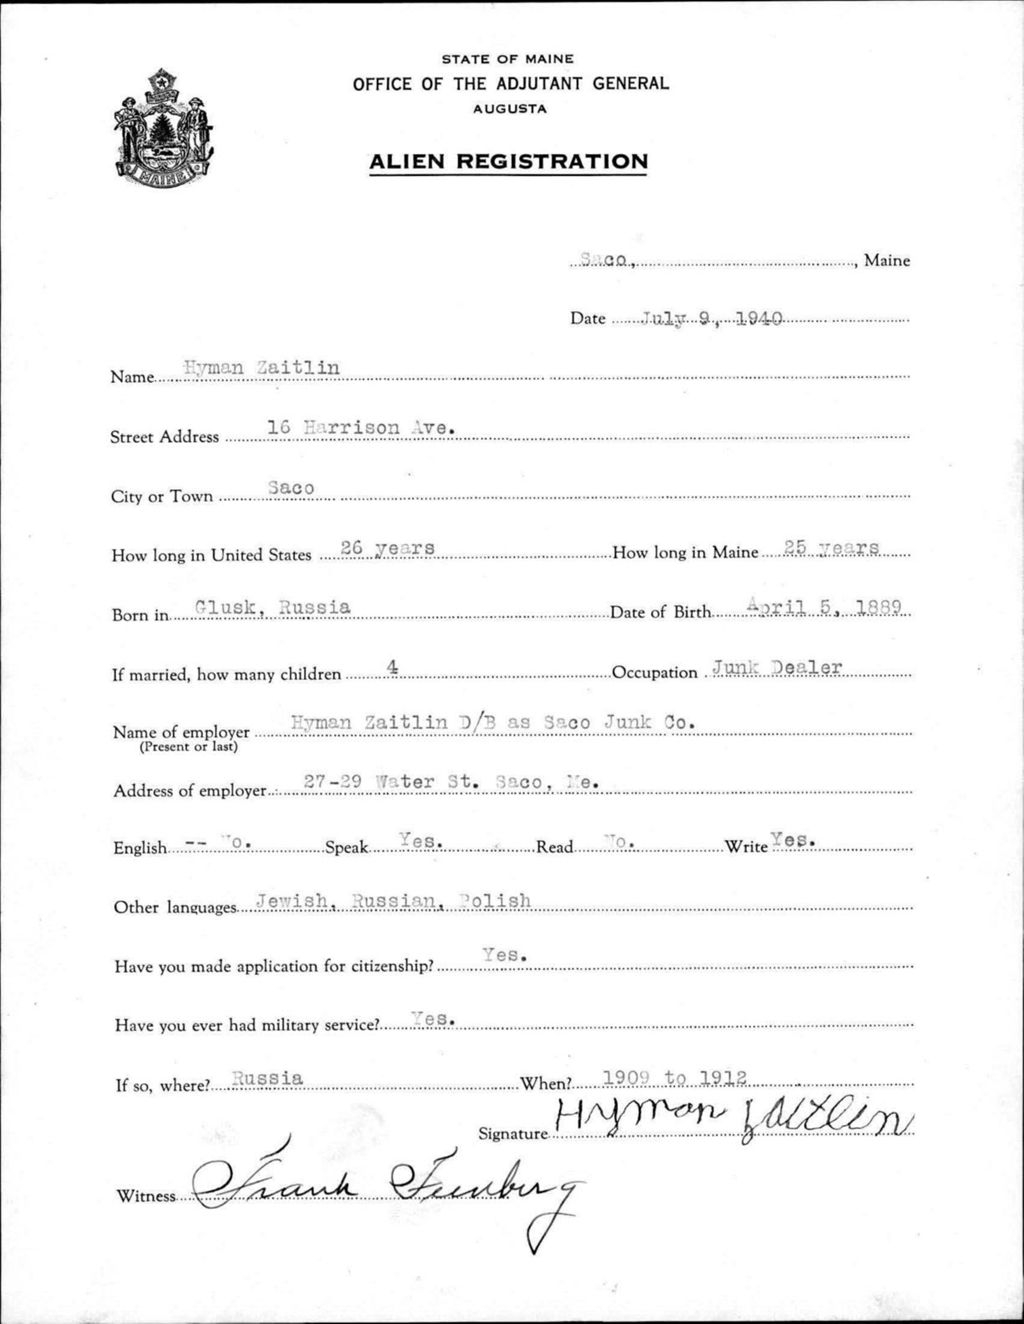 STATE OF MAINE
OFFICE OF THE ADJUTANT GENERAL
AUGUSTA
ALIEN REGISTRATION
MAINE
Saco, , Maine
Date July 9, 1940
Name Hyman Zaitlin
Street Address 16 Harrison Ave.
City or Town Saco
How long in United States 26 years How long in Maine 25 years
Born in Glusk, Russia Date of Birth April 5, 1889
If married, how many children 4 Occupation Junk Dealer
Name of employer Hyman Zaitlin D/B as Saco Junk Co.
(Present or last)
Address of employer 27-29 Water St. Saco, Me.
English -- No. Speak Yes. Read No. Write Yes.
Other languages Jewish, Russian, Polish
Have you made application for citizenship? Yes.
Have you ever had military service? Yes.
If so, where? Russia When? 1909 to 1912
Signature Hyman Zaitlin
Witness Frank Feinberg